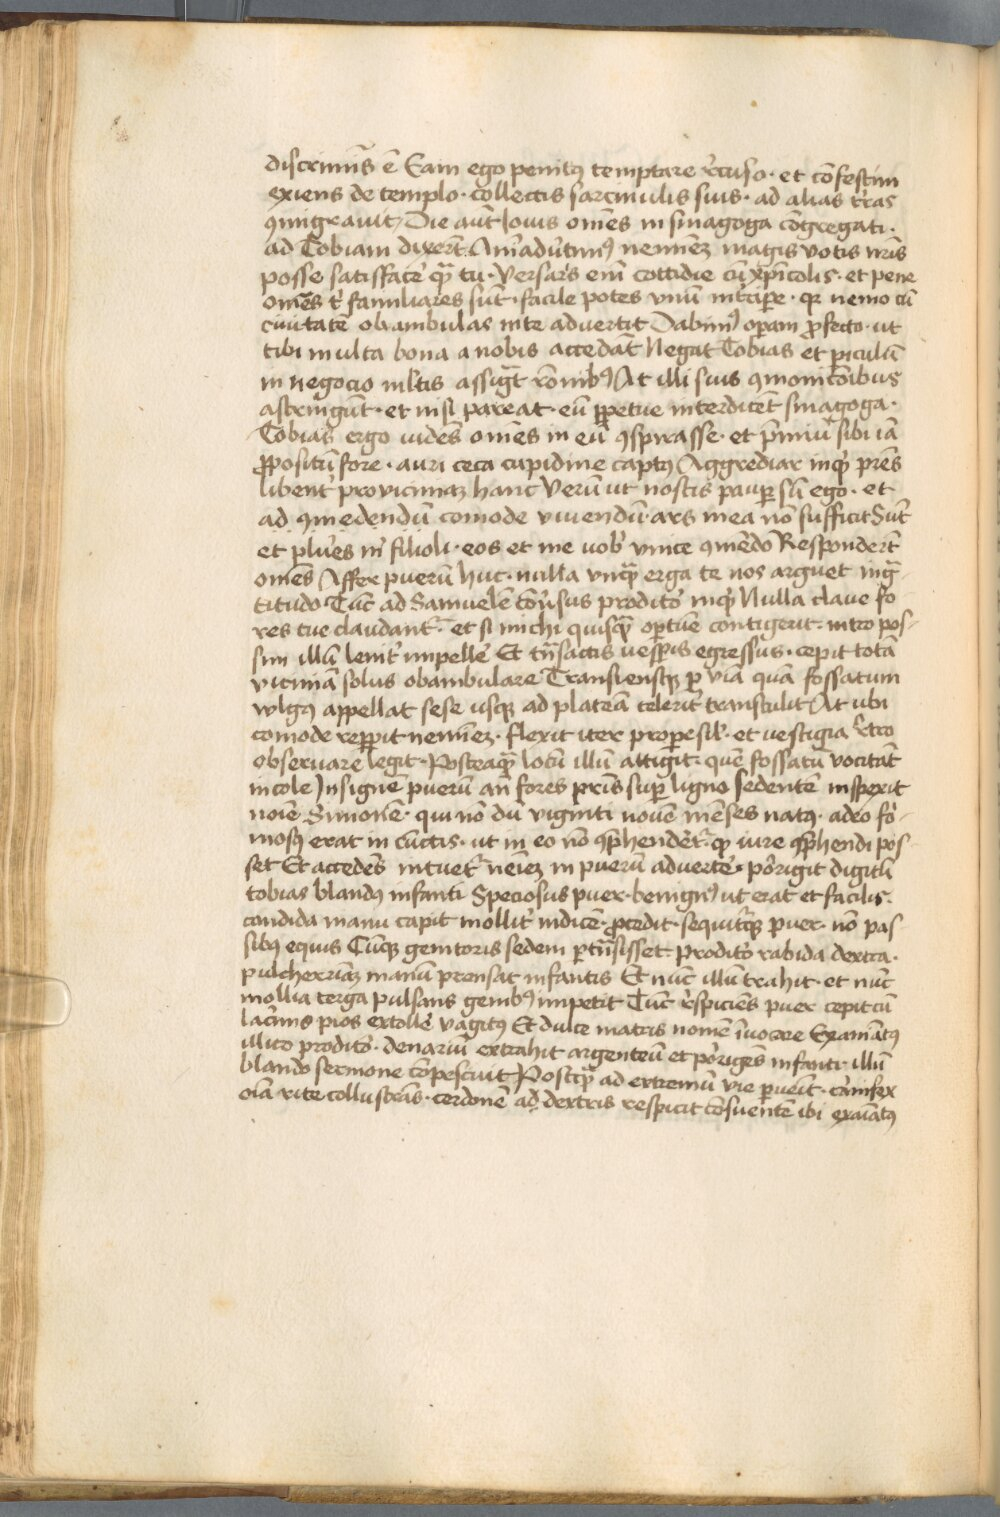 discriminis ē Eam ego penitꝰ temptare recuso · et cōfestim
exiens de templo · collectis sarcinulis suis · ad alias t̄ras
ꝯmigrauit / Die aut̄ Iouis om̄es in sinagoga cōgregati ·
ad Tobiam dixer̄t Aĩaduertimꝰ neminē magis votis nr̄is
posse satisfac̄e q̃ tu · Versaris em̄ cottidie cū xp̄icolis · et pene
om̄es t̄ familiares sūt · facile potes vnū int̄cipe · qꝛ nemo cū
ciuitatē obambulas in te aduertit Dabimꝰ opam ꝓfecto · ut
tibi multa bona a nobis accedāt Negat Tobias et piculū
in negocio m̄ltis assignāt rōnibꝰ At illi suis ꝯmonitōibus
astringūt · et nisi pareat · eū ꝑpetue interdicēt sinagoga ·
Tobias ergo uidēs om̄es in eū ꝯspirasse · et p̄miū sibi iā
ꝓpositū fore · auri ceca cupidine captꝰ Aggrediar inqͥt pr̄es
libent̄ prouinciaꝫ hanc Verū ut nostis paup sū ego · et
ad ꝯmedendū comode viuendū · ars mea nō sufficit Sūt
et plures m̄ filioli · eos et me uob̄ vnice ꝯmēdo Respondert̄
om̄es Affer puerū huc · nulla vnq̃ erga te nos arguet ingͣ-
titudo Tūc ad Samuelē cōuersus proditor inqͥt Nulla claue fo
res tue claudant̄ · et si michi quisq̃ oportūe contigerit · intro pos-
sim illū leniter impelle Et trāsactis uesperis egressus · cepit totā
viciniā solus obambulare Transiensqꝫ p viā quā fossatum
vulgꝰ appellat sese usqꝫ ad plateā celerit̄ transtulit At ubi
comode repperit neminē · flexit iter properesibi · et vestigia retro
obseruare legit · Posteaq̃ locū illū attigit · quē fossatū vocitāt
incole Insignē puerū an̄ fores pr̄is sup ligno sedentē inspexit
noīe Simonē · qui nō dū viginti nouē mēses natꝰ · adeo for-
mosꝰ erat in cūctis · ut in eo nō ꝯp̄henderet̄ qꝫ iure ꝯp̄hendi pos-
set Et accedēs intuet̄ neminē in puerū aduertere · porrigit digitū
tobias blandꝰ infanti Speciosus puer · benignꝰ ut erat et facilis ·
candida manu capit mollit̄ indicē · ꝓcedit · sequit̄qꝫ puer · nō pas
sibꝰ equis Cūqꝫ genitoris sedem ptrāsisset · proditor rabida dextra ·
pulcherrimā manū prensat infantis Et nūc illū trahit · et nūc
mollia terga pulsans genibꝰ impetit Tūc respiciēs puer cepit cū
lacrimis pios extollere vagitꝰ Et dulce matris nomē īuocare Exaniatꝰ
illico proditor · denariū extrahit argenteū et porrigēs infanti · illū
blando sermone cōpescuit Postq̃ ad extremū vie puēit · carnifex
oīa rite collustrās · cerdonē ad dextris respicit cōsuentē ibi exaiatꝰ